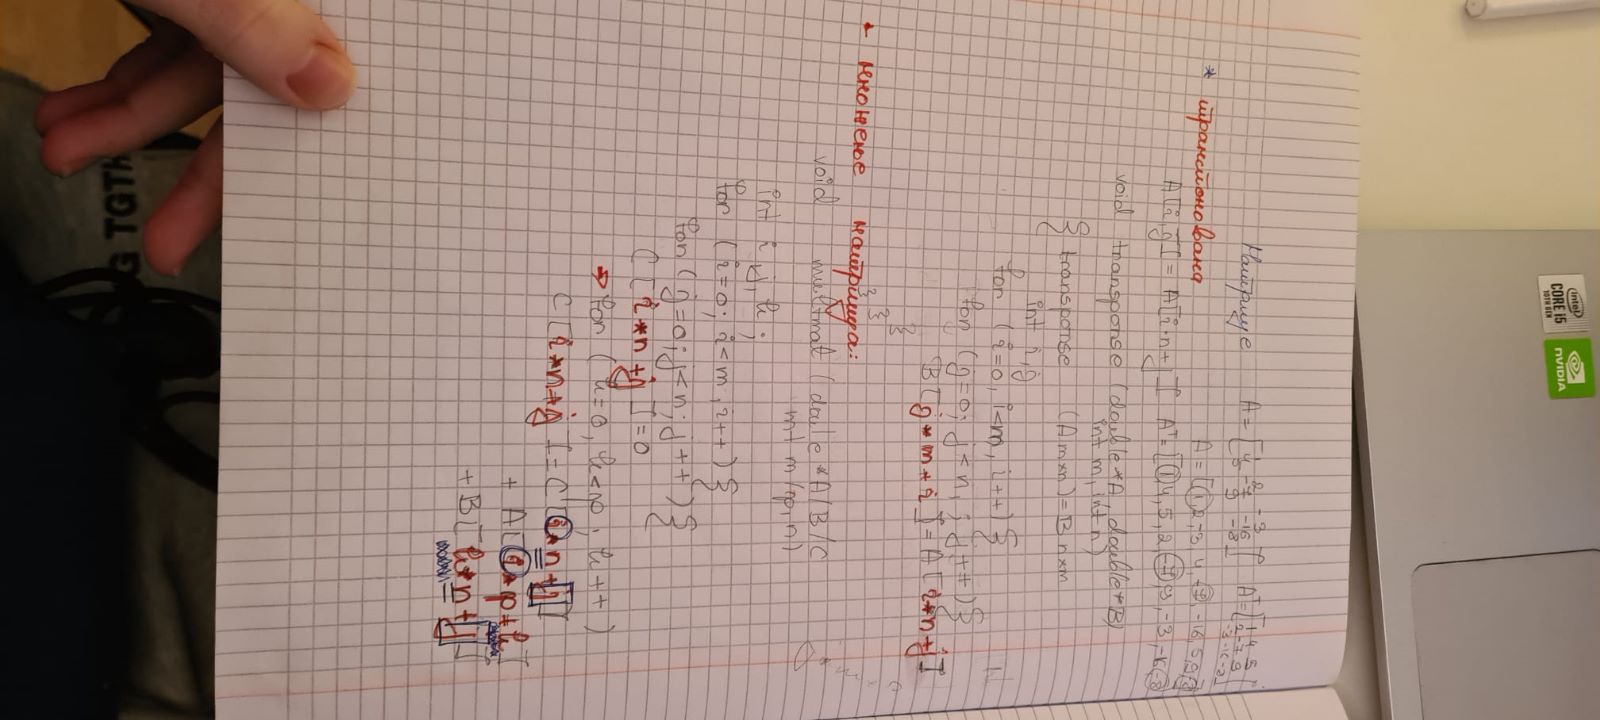 intel
CORE i5
10TH GEN
NVIDIA
Матрице A = [ 1 2 -3 Aᵀ = [ 1 4 5
4 -7 -16 2 -7 9
5 9 -8 ] -3 -16 -8 ]
* транспонована A = [ 1, 2, -3, 4, -7, -16, 5, 9, -8 ]
A[i,j] = A[i·n+j] Aᵀ = [ 1, 4, 5, 2, -7, 9, -3, -16, -8 ]
void transponse (double *A, double *B)
int m, int n)
{ transponse (A m×n) = B n×m
int i,j
for (i=0, i<m, i++) {
for (j=0; j<n, j++) {
B[j*m+i] = A[i*n+j]
}
}
}
- множење матрица:
void multmat (doule *A/B/C
int m/p,n)
int i,j,k;
for (i=0; i<m, i++) {
for (j=0; j<n; j++) {
C[i*n+j] = 0
→ for (k=0, k<p; k++)
C[i*n+j] = C[i*n+j]
+ A[i*p+k]
+ B[k*n+j]
TGTH